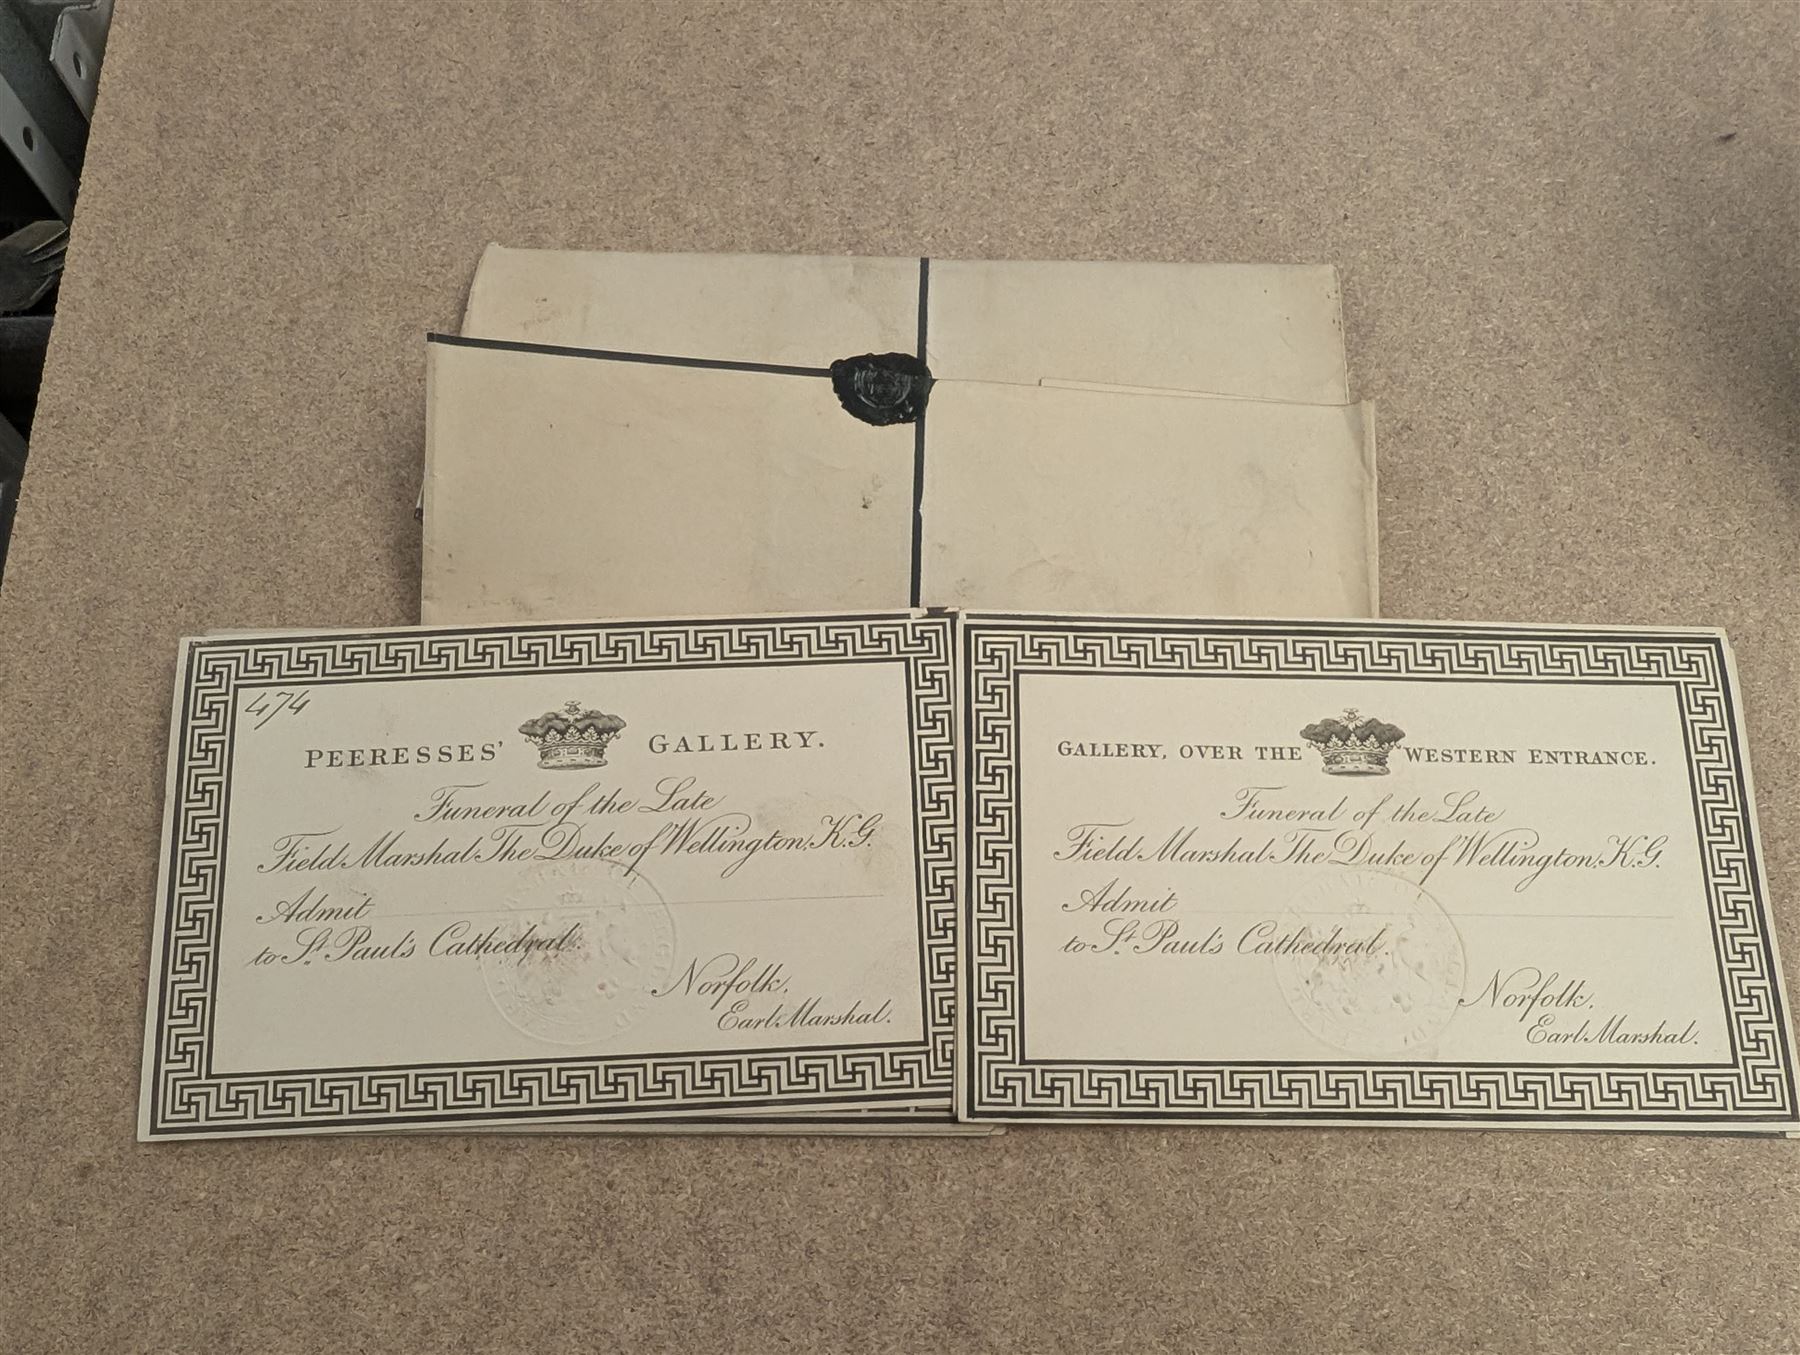 474
PEERESSES' GALLERY.
Funeral of the Late
Field Marshal The Duke of Wellington, K.G.
Admit
to St. Paul's Cathedral.
Norfolk,
Earl Marshal.
GALLERY, OVER THE WESTERN ENTRANCE.
Funeral of the Late
Field Marshal The Duke of Wellington, K.G.
Admit
to St. Paul's Cathedral.
Norfolk,
Earl Marshal.